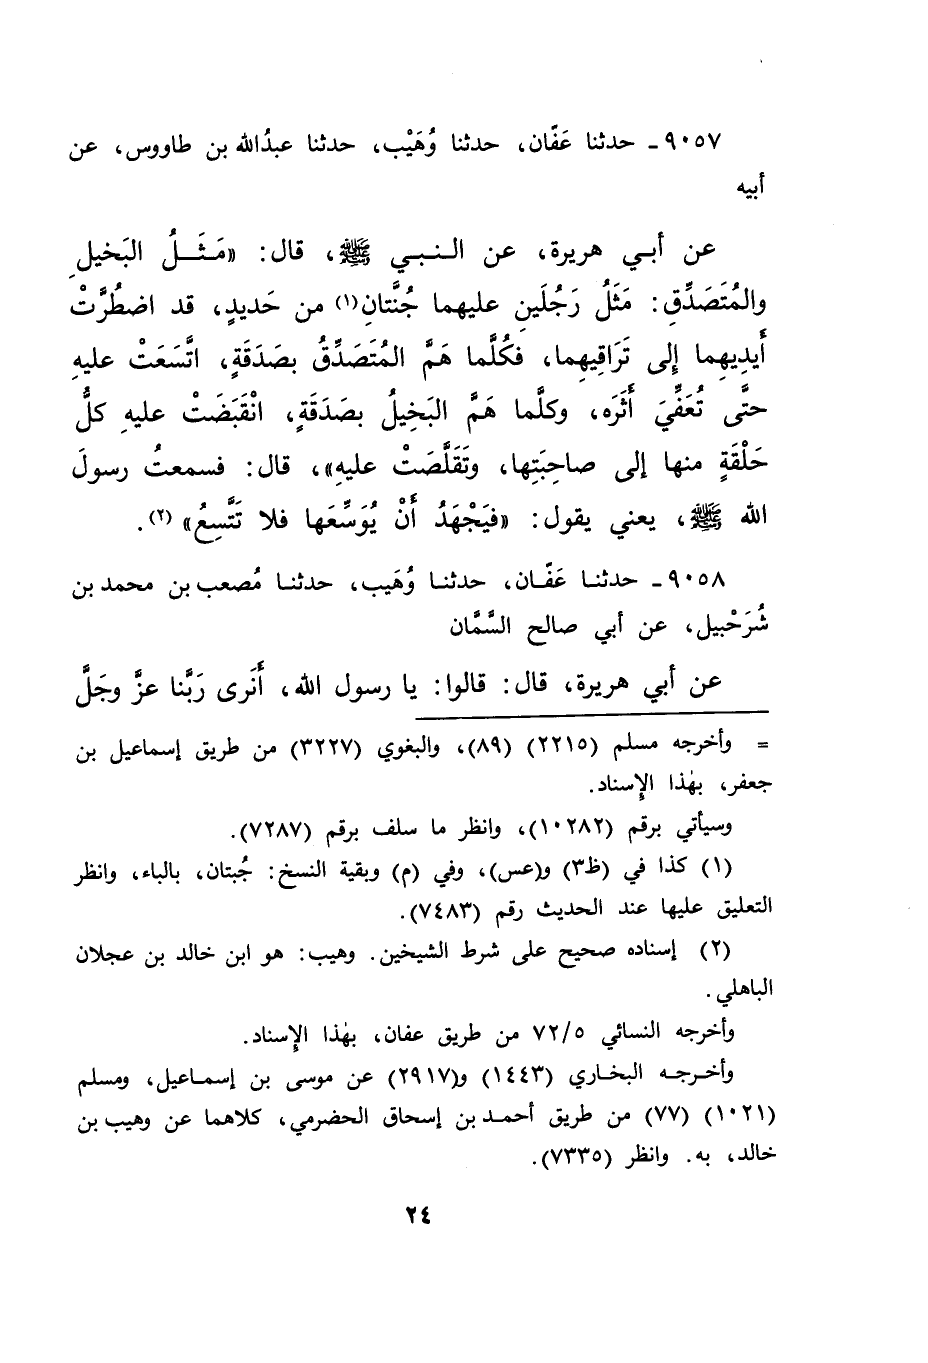 ٩٠٥٧ ـ حدثنا عَفَّان، حدثنا وُهَيْب، حدثنا عبدُالله بن طاووس، عن
أبيه
عن أبي هريرة، عن النبي ﷺ، قال: «مَثَلُ البَخيلِ
والمُتَصَدِّقِ: مَثَلُ رَجُلَينِ عليهما جُنَّتانِ(١) من حَديدٍ، قد اضطُرَّتْ
أَيديهِما إلى تَرَاقِيهِما، فكُلَّما هَمَّ المُتَصَدِّقُ بصَدَقَةٍ، اتَّسَعَتْ عليهِ
حتَّى تُعَفِّيَ أَثَرَه، وكلَّما هَمَّ البَخِيلُ بصَدَقَةٍ، انْقَبَضَتْ عليهِ كلُّ
حَلْقَةٍ منها إلى صاحِبَتِها، وتَقَلَّصَتْ عليهِ»، قال: فسمعتُ رسولَ
الله ﷺ، يعني يقول: «فيَجْهَدُ أَنْ يُوَسِّعَها فلا تَتَّسِعُ» (٢).
٩٠٥٨ ـ حدثنا عَفَّان، حدثنا وُهَيب، حدثنا مُصعب بن محمد بن
شُرَحْبيل، عن أبي صالح السَّمَّان
عن أبي هريرة، قال: قالوا: يا رسول الله، أَنَرى رَبَّنا عزَّ وجَلَّ
= وأخرجه مسلم (٢٢١٥) (٨٩)، والبغوي (٣٢٢٧) من طريق إسماعيل بن
جعفر، بهٰذا الإِسناد.
وسيأتي برقم (١٠٢٨٢)، وانظر ما سلف برقم (٧٢٨٧).
(١) كذا في (ظ٣) و(عس)، وفي (م) وبقية النسخ: جُبتان، بالباء، وانظر
التعليق عليها عند الحديث رقم (٧٤٨٣).
(٢) إسناده صحيح على شرط الشيخين. وهيب: هو ابن خالد بن عجلان
الباهلي.
وأخرجه النسائي ٧٢/٥ من طريق عفان، بهٰذا الإِسناد.
وأخرجه البخاري (١٤٤٣) و(٢٩١٧) عن موسى بن إسماعيل، ومسلم
(١٠٢١) (٧٧) من طريق أحمد بن إسحاق الحضرمي، كلاهما عن وهيب بن
خالد، به. وانظر (٧٣٣٥).
٢٤